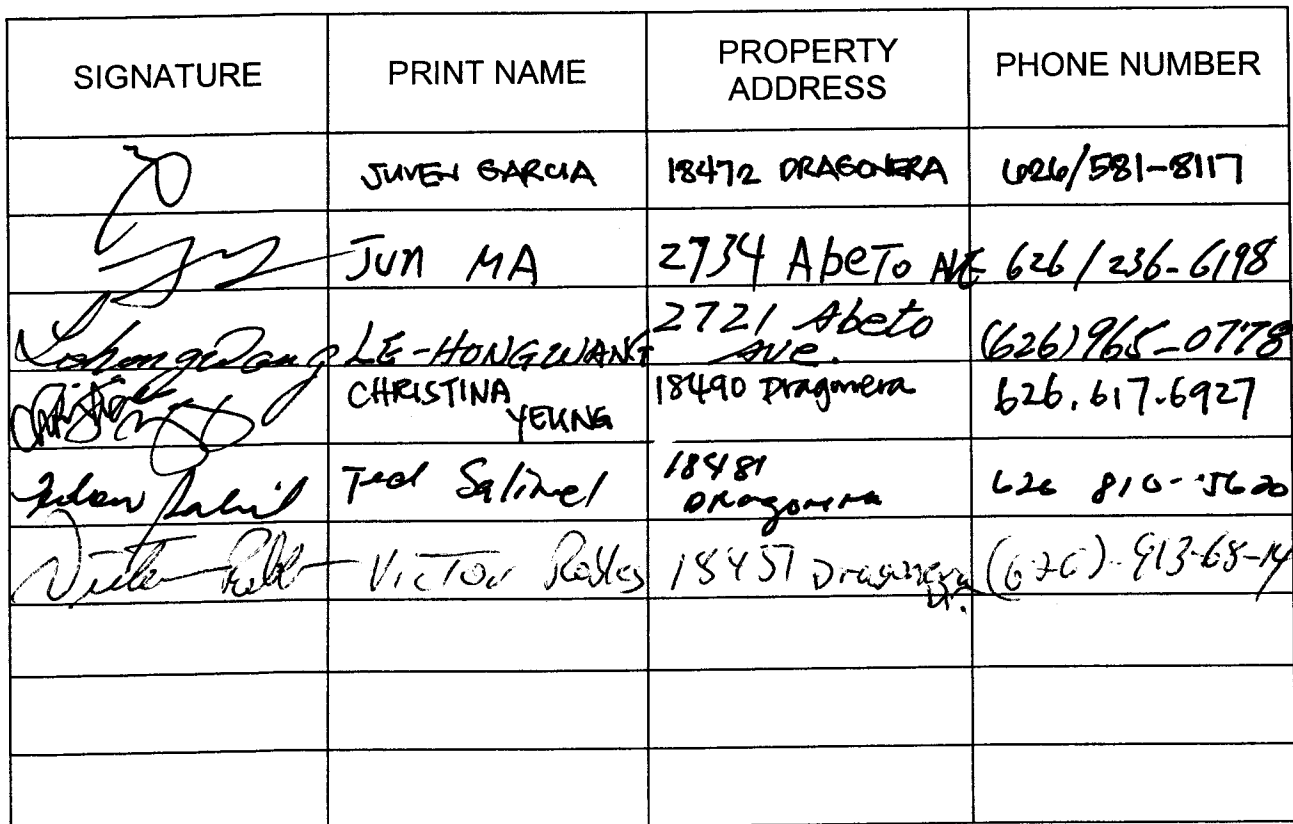 SIGNATURE PRINT NAME PROPERTY ADDRESS PHONE NUMBER
JUVEN GARCIA 18472 DRAGONERA 626/581-8117
Jun MA 2734 Abeto AVE 626/236-6198
Lehong Wang LE-HONG WANG 2721 Abeto Ave. (626) 965-0778
CHRISTINA YEUNG 18490 Dragonera 626.617.6927
Ted 18481 Dragonera 626 810-5620
Victor 18451 Dragonera Dr. (626)-913-68-14